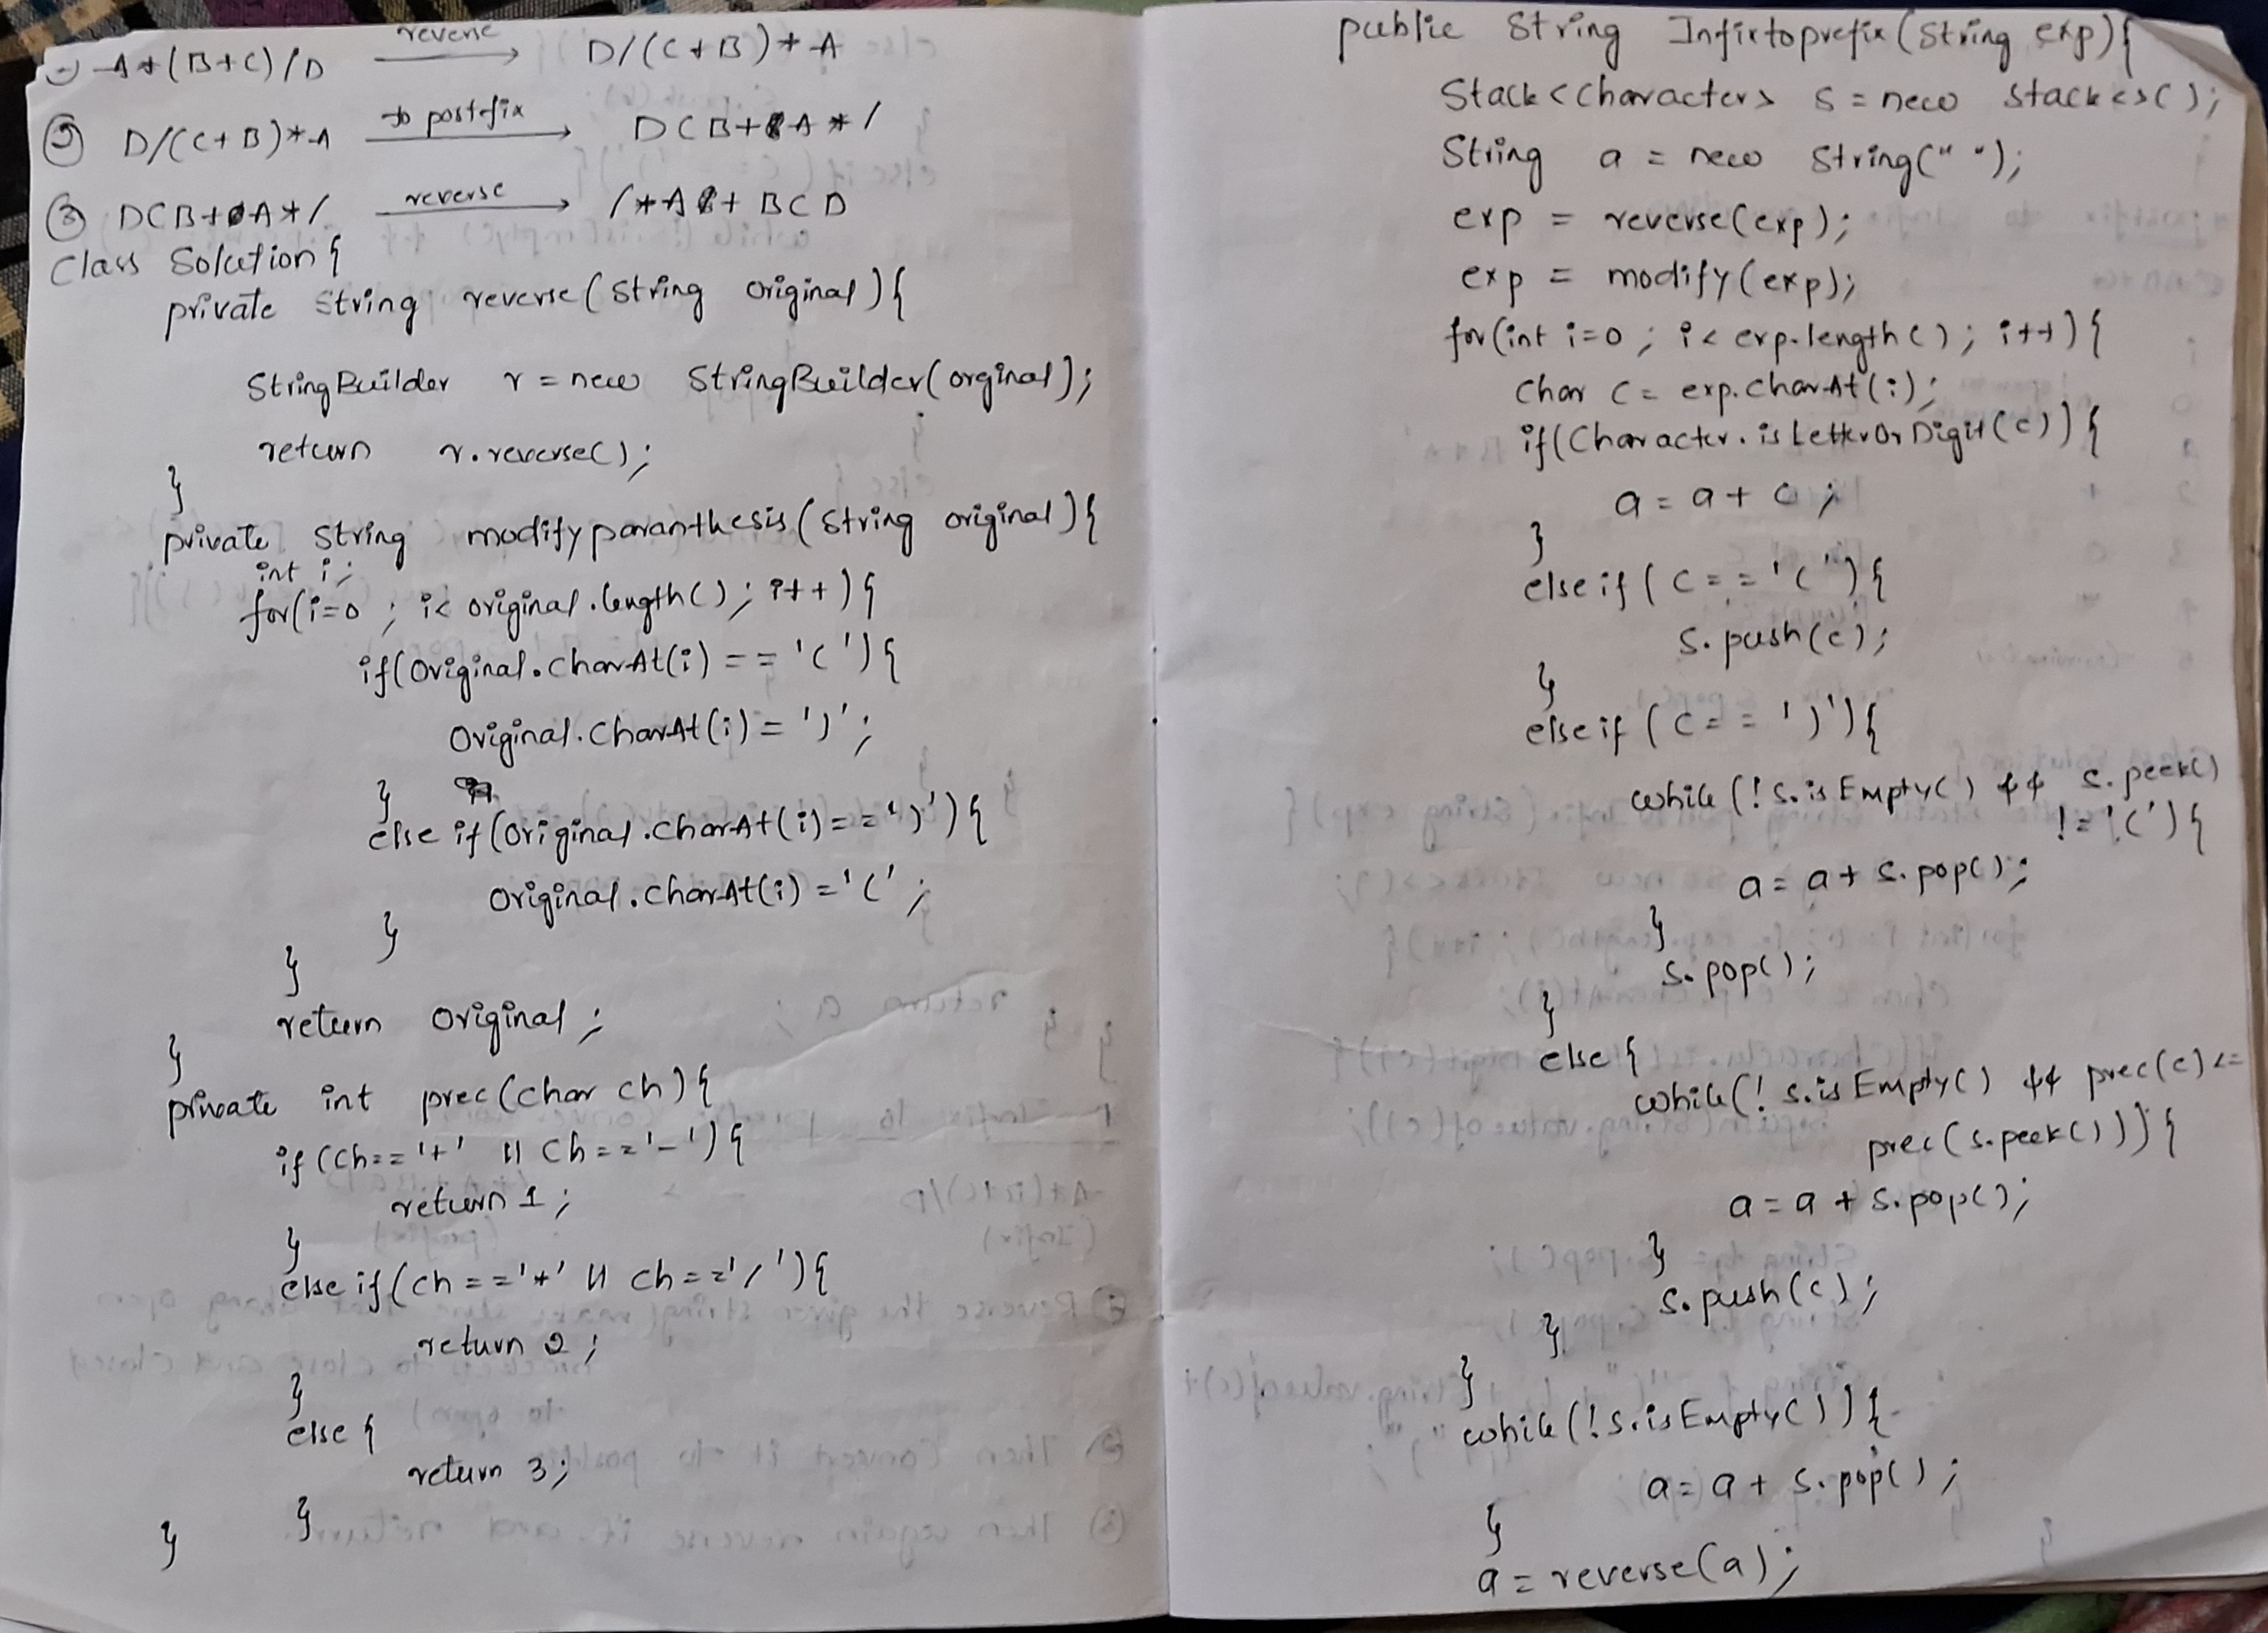 ① A*(B+C)/D reverse → D/(C+B)*A
② D/(C+B)*A to postfix → DCB+A*/
③ DCB+A*/ reverse → /*A+BCD
class Solution{
private String reverse(String original){
StringBuilder r = new StringBuilder(orginal);
return r.reverse();
}
private String modifyparanthesis(String original){
int i;
for(i=0; i< original.length(); i++){
if(original.charAt(i) == '('){
original.charAt(i) = ')';
}
else if(original.charAt(i) == ')'){
original.charAt(i) = '(';
}
}
return original;
}
private int prec(char ch){
if(ch=='+' || ch=='-'){
return 1;
}
else if(ch=='*' || ch=='/'){
return 2;
}
else{
return 3;
}
}
public String Infixtoprefix(String exp){
Stack<Characters> s = new Stack<>();
String a = new String(" ");
exp = reverse(exp);
exp = modify(exp);
for(int i=0; i< exp.length(); i++){
char c = exp.charAt(i);
if(Character.isLetterOrDigit(c)){
a = a + c;
}
else if(c == '('){
s.push(c);
}
else if(c == ')'){
while(!s.isEmpty() && s.peek()
!= '('){
a = a + s.pop();
}
s.pop();
}
else{
while(!s.isEmpty() && prec(c)<=
prec(s.peek())){
a = a + s.pop();
}
s.push(c);
}
}
while(!s.isEmpty()){
a = a + s.pop();
}
a = reverse(a);